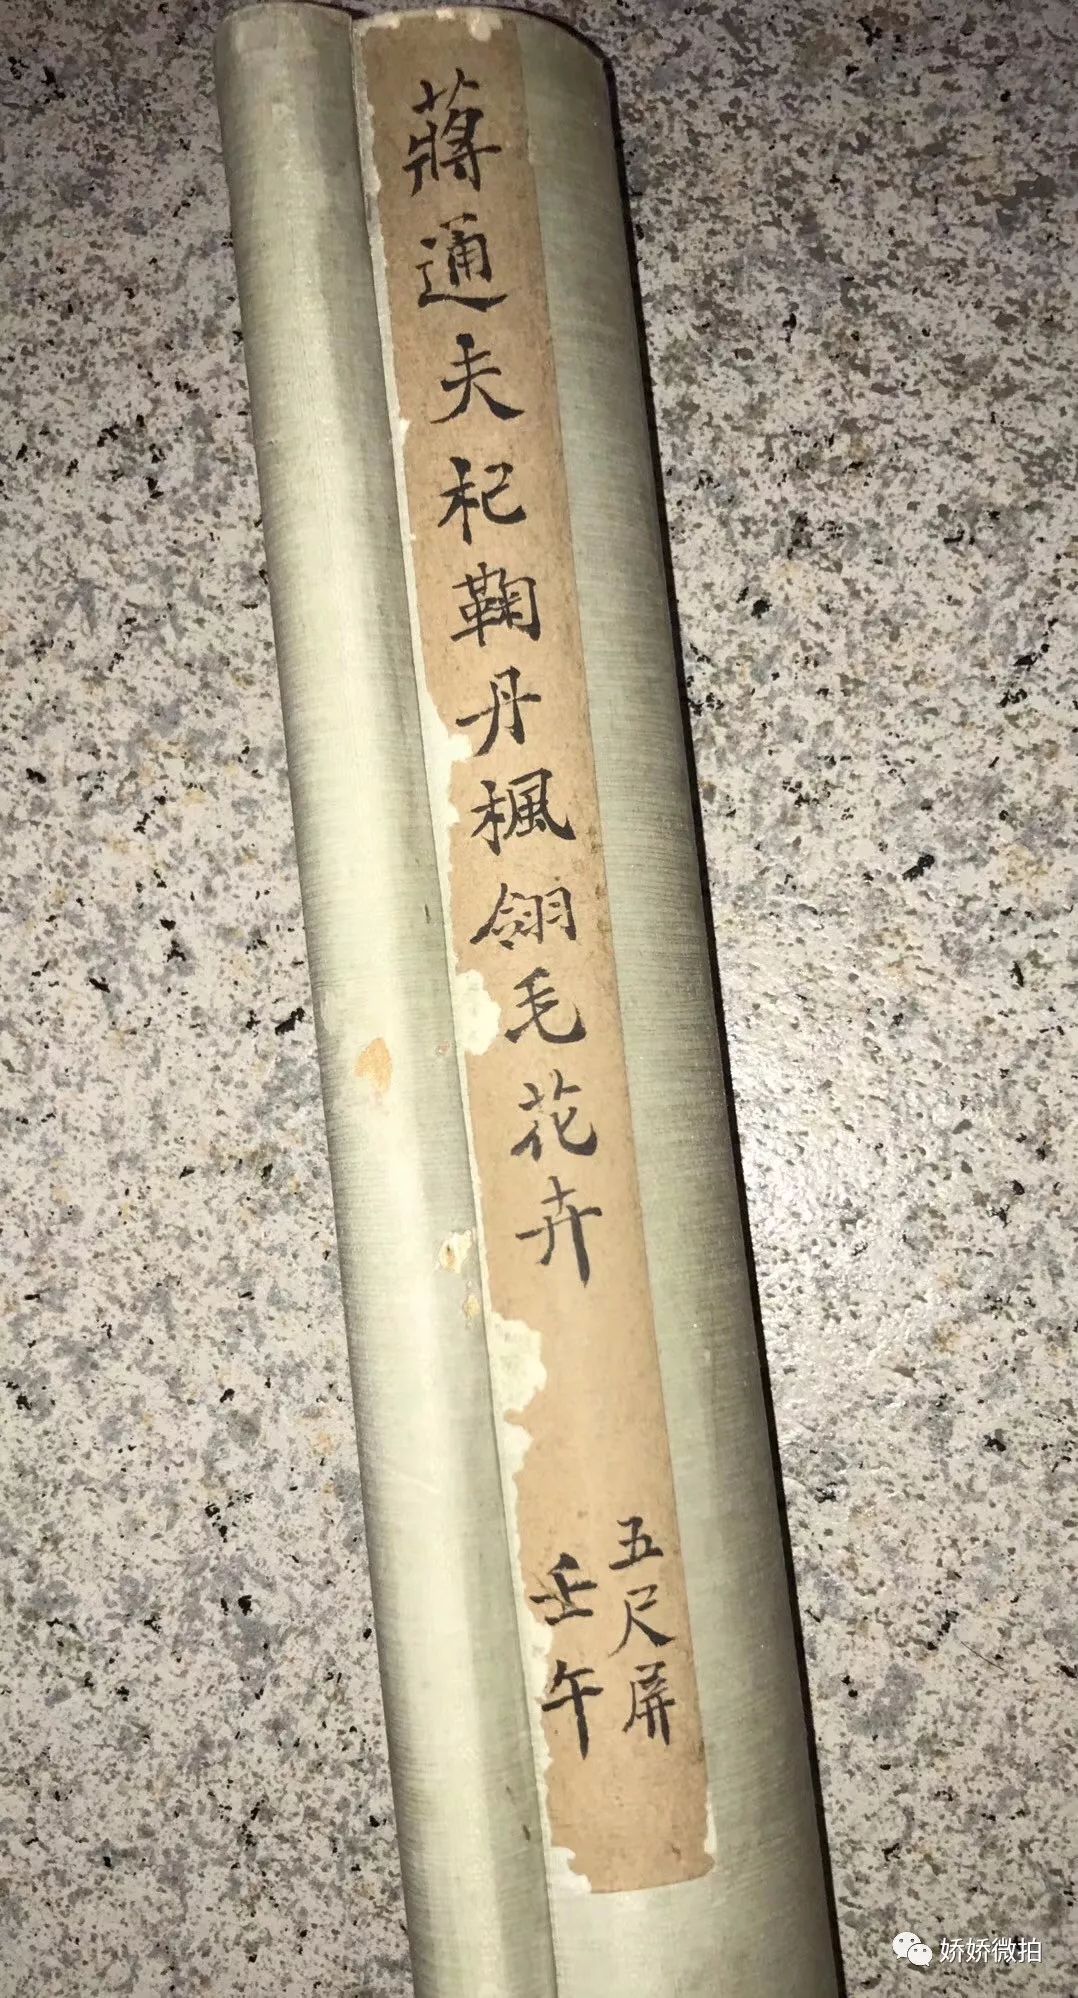 蔣通夫杞鞠丹楓翎毛花卉
五尺屏
壬午
娇娇微拍